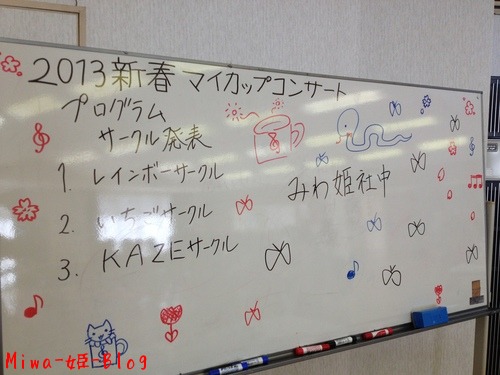 2013新春 マイカップコンサート
プログラム
サークル発表
1. レインボーサークル
2. いちごサークル
3. KAZEサークル
みわ姫社中
Miwa-姫 Blog